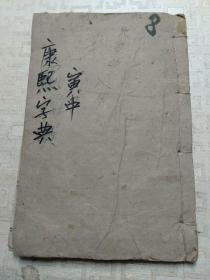 8
寅中
康熙字典